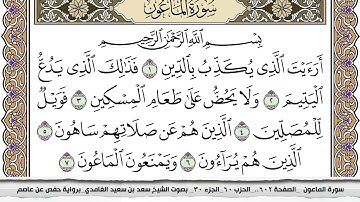 سورة الماعون
بِسْمِ ٱللَّهِ ٱلرَّحْمَٰنِ ٱلرَّحِيمِ
أَرَءَيْتَ ٱلَّذِى يُكَذِّبُ بِٱلدِّينِ ١ فَذَٰلِكَ ٱلَّذِى يَدُعُّ
ٱلْيَتِيمَ ٢ وَلَا يَحُضُّ عَلَىٰ طَعَامِ ٱلْمِسْكِينِ ٣ فَوَيْلٌ
لِّلْمُصَلِّينَ ٤ ٱلَّذِينَ هُمْ عَن صَلَاتِهِمْ سَاهُونَ ٥
ٱلَّذِينَ هُمْ يُرَآءُونَ ٦ وَيَمْنَعُونَ ٱلْمَاعُونَ ٧
سورة الماعون _الصفحة ٦٠٢_ الحزب ٦٠_الجزء ٣٠_ بصوت الشيخ سعد بن سعيد الغامدي _برواية حفص عن عاصم